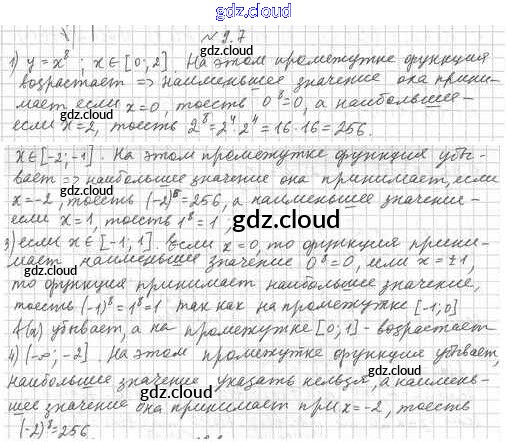 gdz.cloud
№ 9.7
1) y = x⁸ ; x ∈ [0; 2]. На этом промежутке функция
возрастает => наименьшее значение она прини-
мает если x=0, тоесть 0⁸=0, а наибольшее -
если x=2, тоесть 2⁸=2⁴·2⁴=16·16=256.
x∈[-2;-1]. На этом промежутке функция убы-
вает => наибольшее значение она принимает, если
x=-2, тоесть (-2)⁸=256, а наименьшее значение -
если x=1, тоесть 1⁸=1
gdz.cloud
3) если x∈[-1;1]. Если x=0, то функция прини-
мает наименьшее значение 0⁸=0, если x=±1,
то функция принимает наибольшее значение,
тоесть (-1)⁸=1⁸=1 так как на промежутке [-1;0]
убывает, а на промежутке [0;1] - возрастает
4) (-∞;-2]. На этом промежутке функция убывает,
наибольшее значение указать нельзя, а наимень-
шее значение она принимает при x=-2, тоесть
(-2)⁸=256.
gdz.cloud